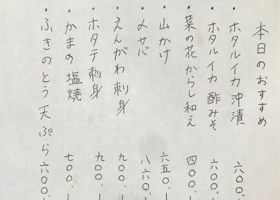 本日のおすすめ
・ホタルイカ沖漬 六〇〇、ー
・ホタルイカ酢みそ 六〇〇、ー
・菜の花からし和え 四〇〇、ー
・山かけ 六五〇、ー
・〆サバ 八六〇、ー
・えんがわ刺身 九〇〇、ー
・ホタテ刺身 九〇〇、ー
・かまの塩焼 七〇〇、ー
・ふきのとう天ぷら 六〇〇、ー